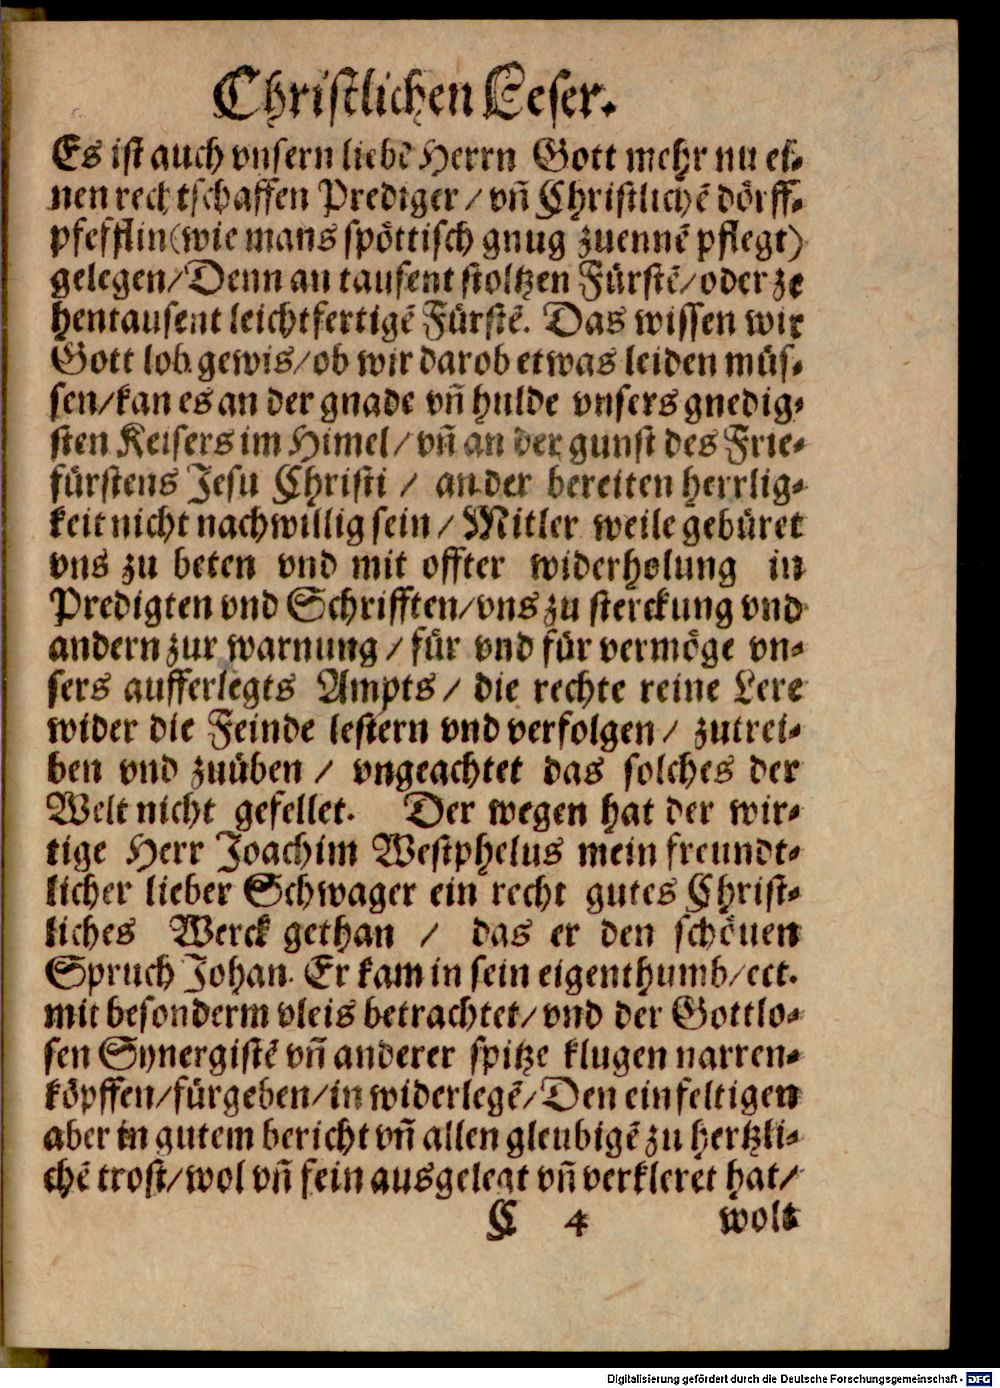 Christlichen Leser.
Es ist auch vnsern liebē Herrn Gott mehr nu ei-
nen rechtschaffen Prediger / vñ Christlichē dörff-
pfefflin (wie mans spöttisch gnug zuennē pflegt)
gelegen / Denn an tausent stoltzen Fürstē / oder ze
hentausent leichtfertigē Fürstē. Das wissen wir
Gott lob gewis / ob wir darob etwas leiden müs-
sen / kan es an der gnade vñ hulde vnsers gnedig-
sten Keisers im Himel / vñ an der gunst des Frie-
fürstens Jesu Christi / an der bereiten herrlig-
keit nicht nachwillig sein / Mitler weile gebüret
vns zu beten vnd mit offter widerholung in
Predigten vnd Schrifften / vns zu sterckung vnd
andern zur warnung / für vnd für vermöge vn-
sers aufferlegts Ampts / die rechte reine Lere
wider die Feinde lestern vnd verfolgen / zutrei-
ben vnd zuüben / vngeachtet das solches der
Welt nicht gefellet. Der wegen hat der wir-
tige Herr Joachim Westphelus mein freundt-
licher lieber Schwager ein recht gutes Christ-
liches Werck gethan / das er den schönen
Spruch Johan. Er kam in sein eigenthumb / ect.
mit besonderm vleis betrachtet / vnd der Gottlo-
sen Synergistē vñ anderer spitze klugen narren-
köpffen / fürgeben / in widerlegē / Den einfeltigen
aber in gutem bericht vñ allen gleubigē zu hertzli-
chē trost / wol vñ fein ausgelegt vñ verkleret hat /
C 4 wolt
Digitalisierung gefördert durch die Deutsche Forschungsgemeinschaft - DFG